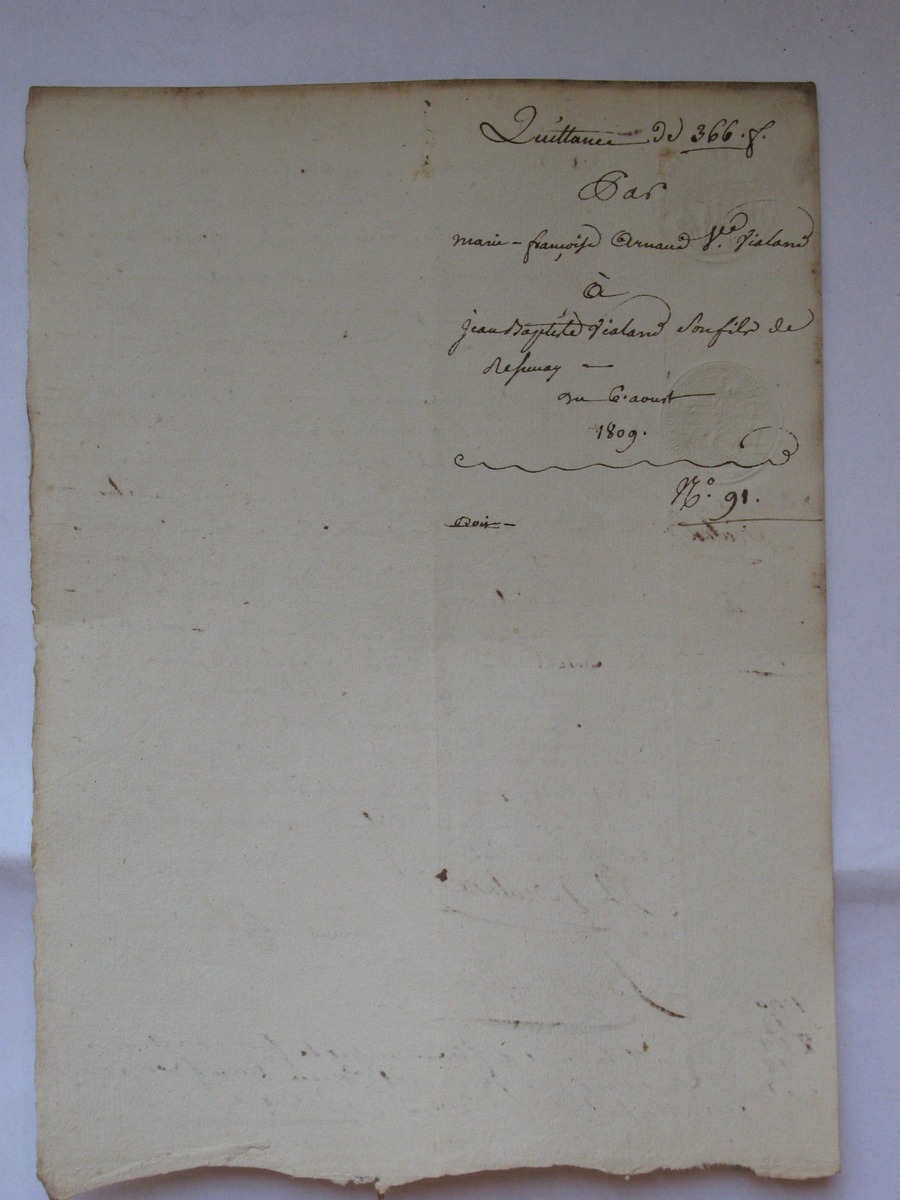 Quittance de 366. f.
Par
marie-françoise Arnaud V.ve Vialand
à
jean Baptiste Vialand Son fils de
du 6. aoust
1809.
N.o 91.